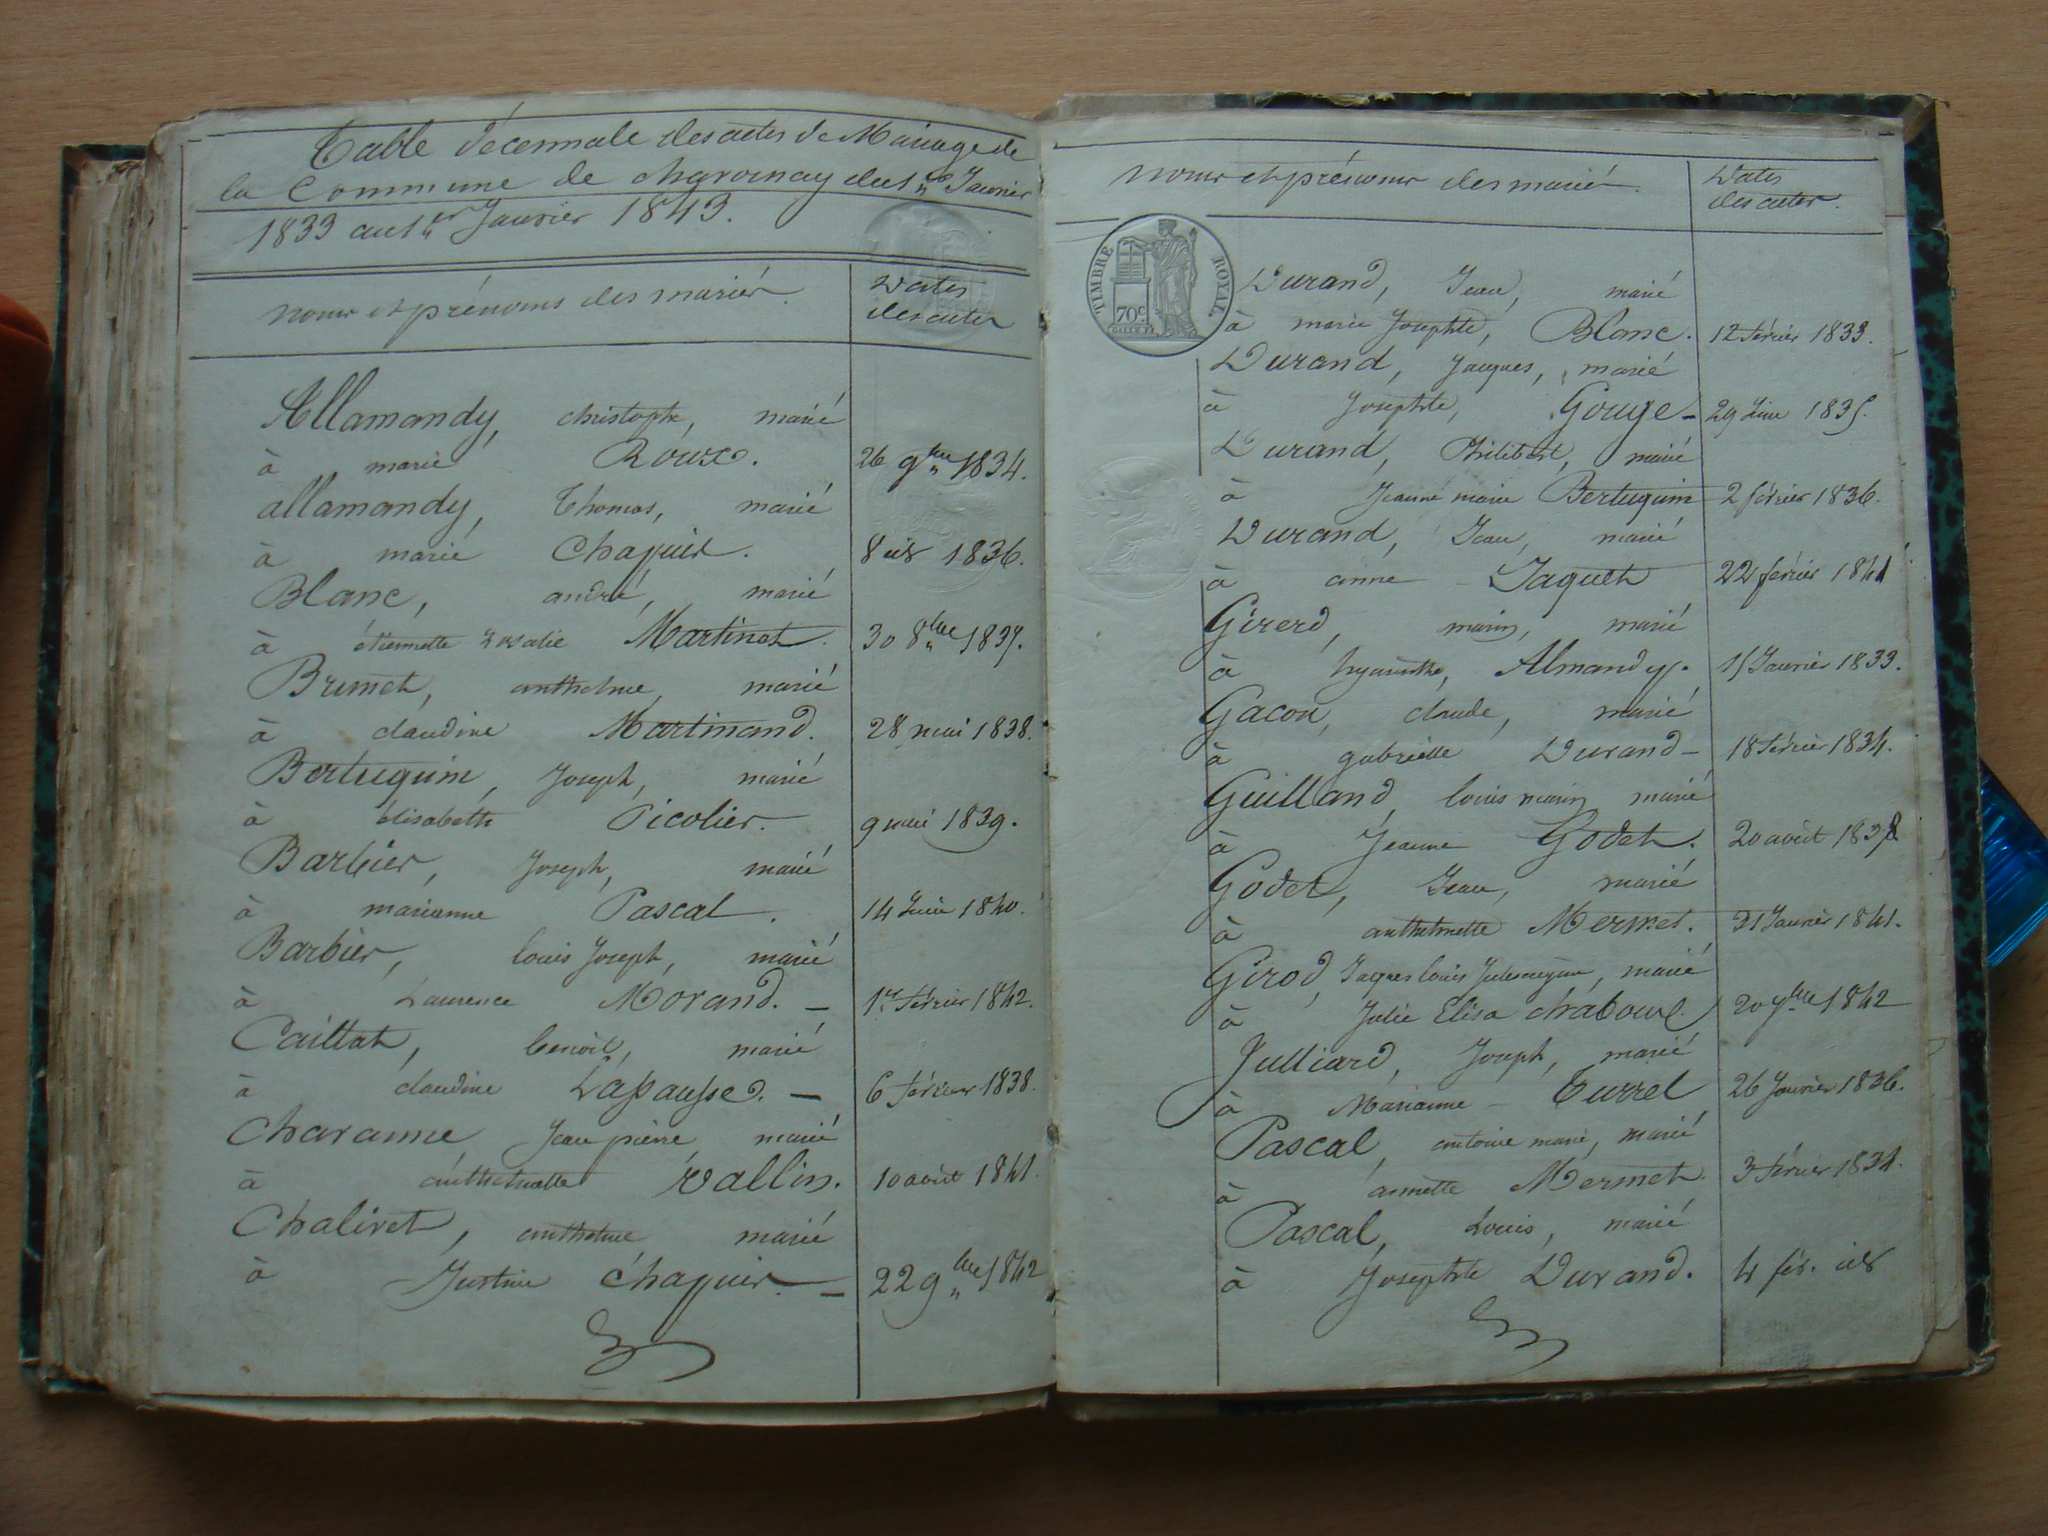 Table décennale des actes de Mariage de
la Commune de charoinay du 1er Janvier
1833 au 1er Janvier 1843.
noms et prénoms des mariés.
Dates
des actes
Allamandy, christophe, marié
à marie Roux. 26 9bre 1834.
allamandy, Thomas, marié
à marie Chapuis. 8 1836.
Blanc, andré, marié
à étiennette rosalie Martinot. 30 8bre 1837.
Brunet, anthelme, marié
à claudine Martinand. 28 mai 1838.
Bertuquin, Joseph, marié
à élisabeth Picolier. 9 mai 1839.
Barbier, Joseph, marié
à marianne Pascal. 14 Juin 1840.
Barbier, louis Joseph, marié
à Laurence Morand. 1er février 1842.
Caillat, benoit, marié
à claudine Lapausse. 6 février 1838.
Charanne Jean pierre marié
à anthelmette Vallin. 10 août 1841.
Chalivet, anthelme marié
à Justine Chapuis. 22 9bre 1842
noms et prénoms des mariés.
Dates
des actes.
TIMBRE ROYAL
70c
Durand, Jean, marié
à marie Josephte, Blanc. 12 février 1833.
Durand, Jacques, marié
à Josephte, Gouge 29 Juin 1835.
Durand, Philibert, marié
à Jeanne marie Bertuquin 2 février 1836.
Durand, Jean, marié
à anne Jaquet 22 février 1841
Girerd, marin, marié
à hyacinthe, Almandy. 15 Janvier 1833.
Gacon, claude, marié
à gabrielle Durand 18 février 1834.
Guilland, louis marin marié
à Jeanne Godet. 20 août 1838
Godet, Jean, marié
à anthelmette Mermet. 21 Janvier 1841.
Girod, Jacques louis, marié
à Julie Elisa chaboud 20 7bre 1842
Julliard, Joseph, marié
à Marianne Turrel 26 Janvier 1836.
Pascal, antoine marie, marié
à annette Mermet. 3 février 1834.
Pascal, Louis, marié
à Josephte Durand. 4 fév. id